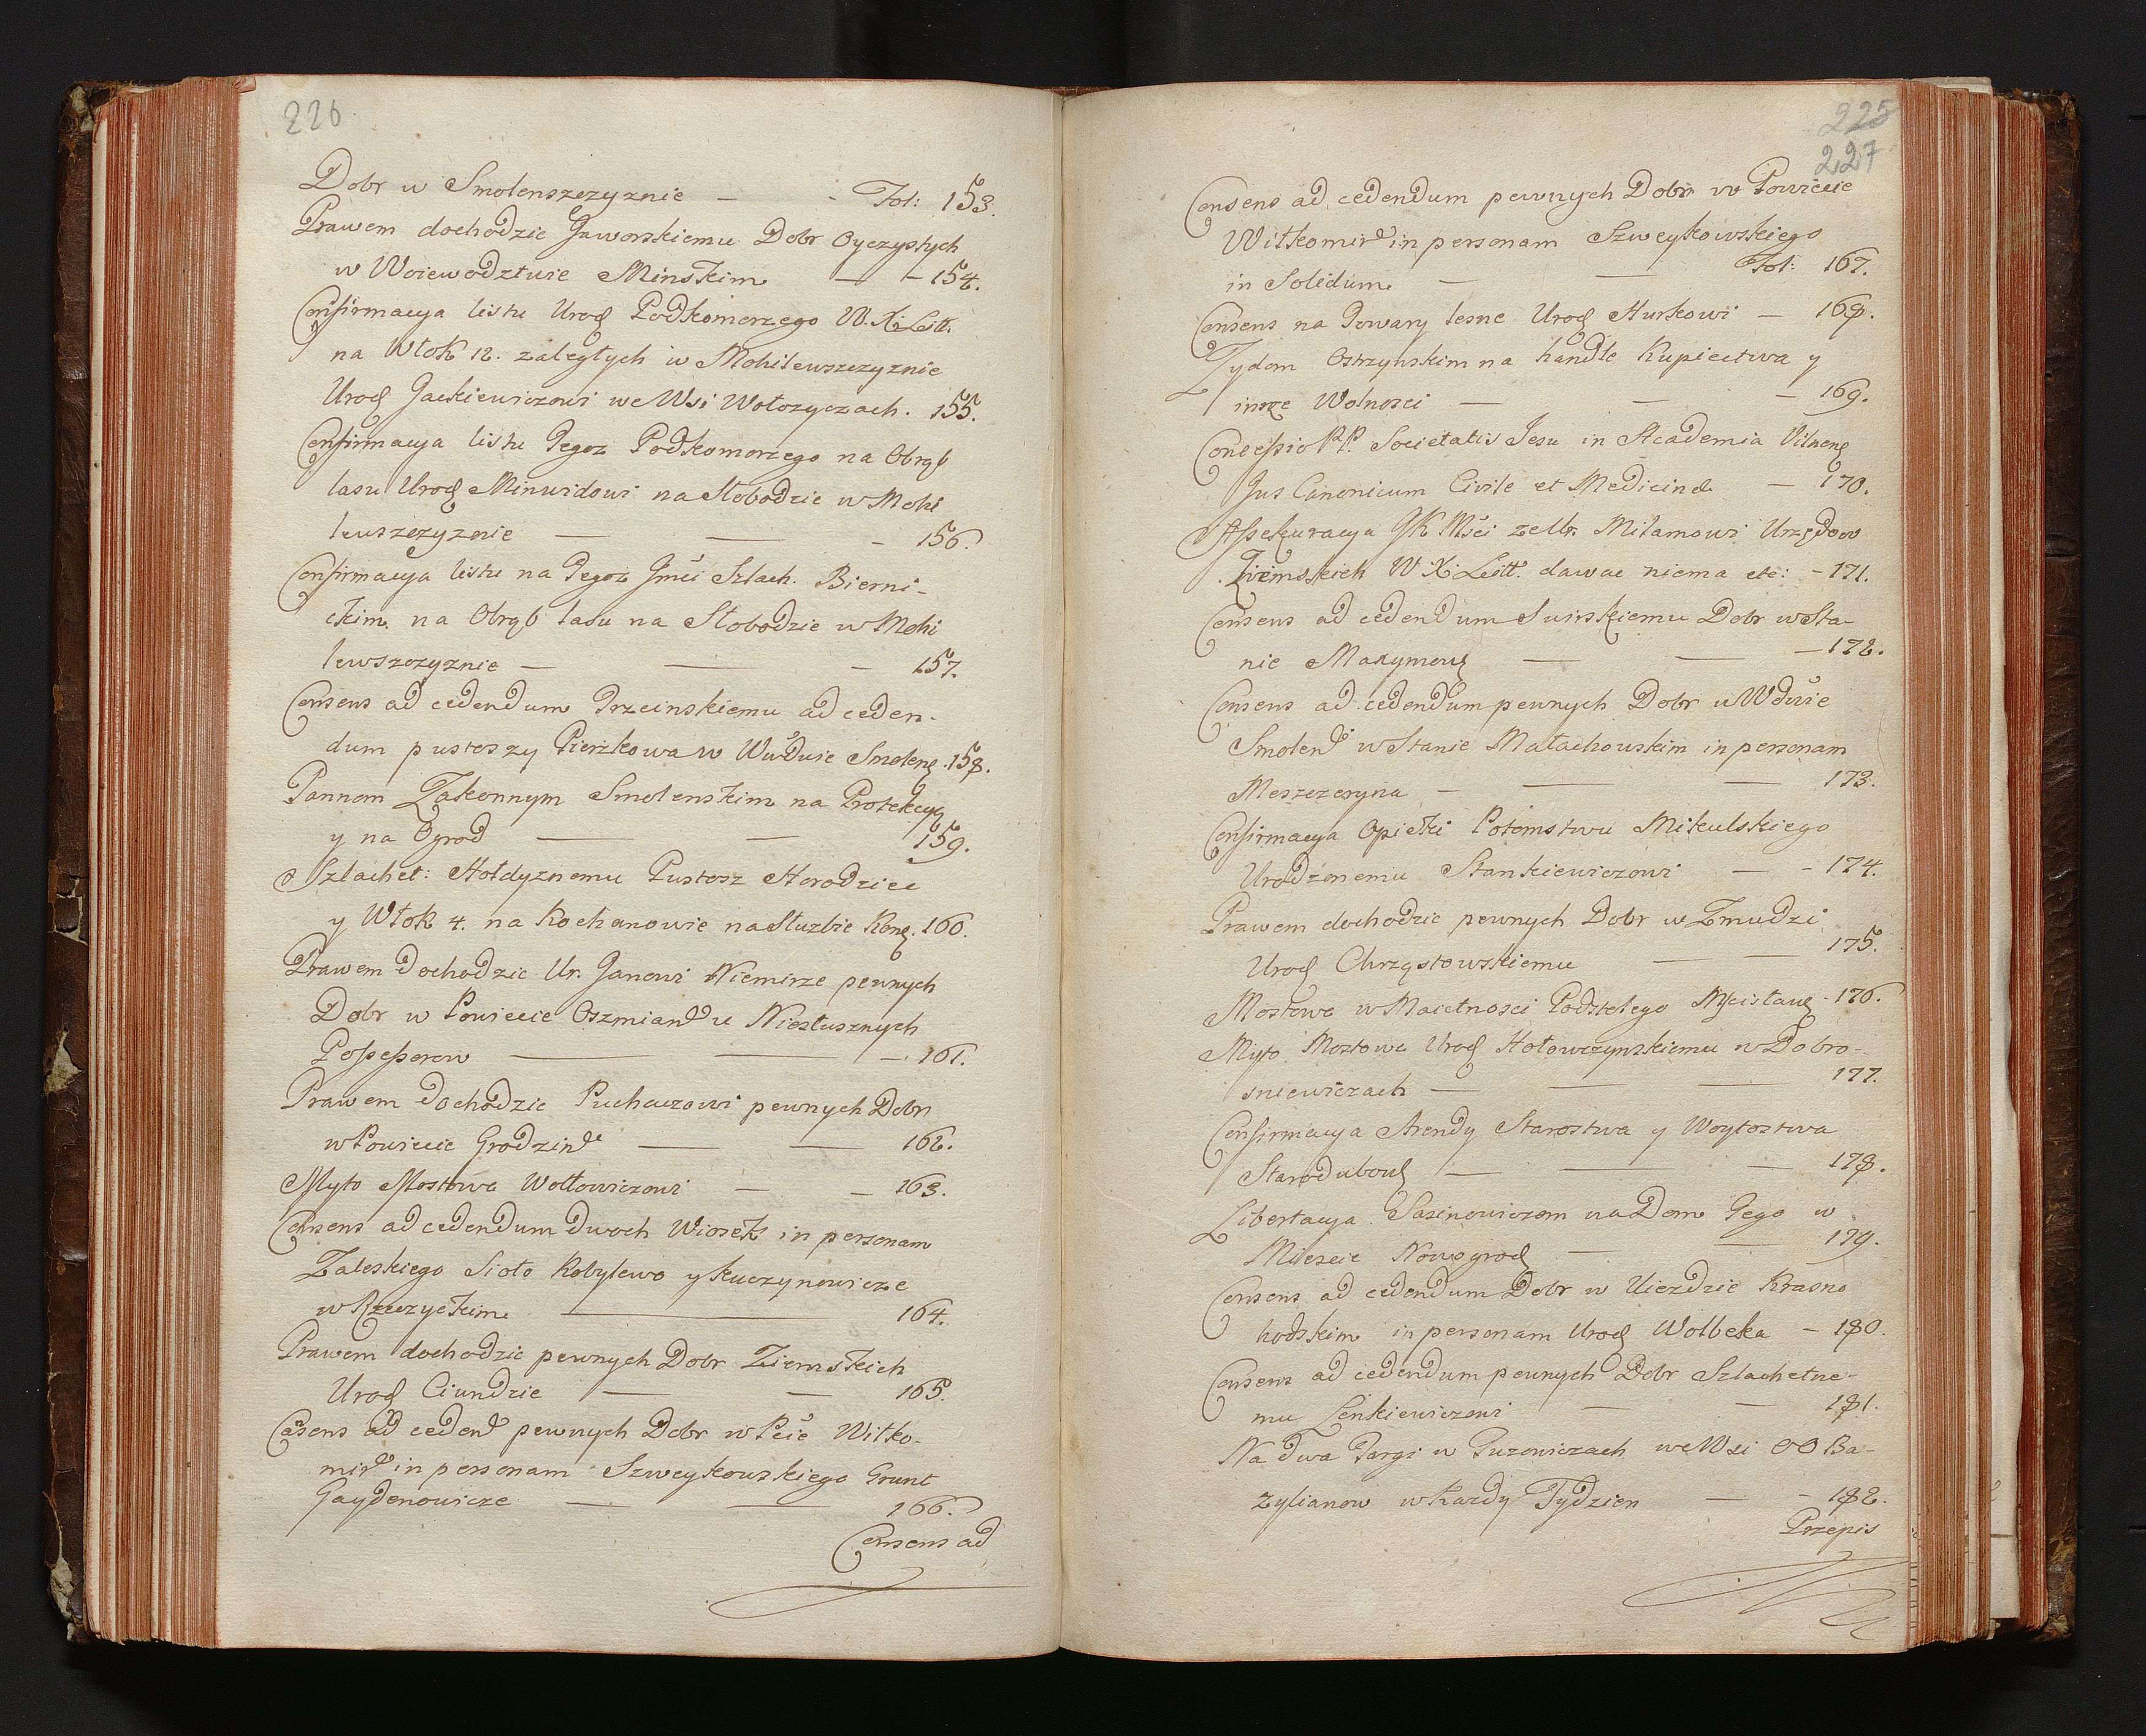 226
Dobr w Smolenszczyznie — - Fol: 153.
Prawem dochodzic Jaworskiemu Dobr Oyczystych
w Woiewodztwie Minskim — – 154.
Confirmacya listu Urod Podkomorzego W. X. Litt.
na Włok 12. zaległych w Mohilewszczyznie
Urod Jackiewiczowi we Wsi Wołozyczach. 155.
Confirmacya listu Tegoz Podkomorzego na Obrąb
lasu Urod Minwidowi na Słobodzie w Mohi
lewszczyznie — — – 156.
Confirmacya listu na Tegoz Jmći Szlach. Bierni-
ckim na Obrąb lasu na Słobodzie w Mohi
lewszczyznie — — – 157.
Consens ad cedendum Trzcinskiemu ad ceden-
dum pustoszy Pierzkowa w Wwdwie Smolens. 158.
Pannom Zakonnym Smolenskim na Protekcyą
y na Ogrod — — 159.
Szlachet: Hołdyznemu Pustosz Horodziec
y Włok 4. na Kochanowie na Służbie Kons. 160.
Prawem dochodzic Ur. Janowi Niemirze pewnych
Dobr w Powiecie Oszmian u Niesłusznych
Possessorow — — – 161.
Prawem dochodzic Puchaczowi pewnych Dobr
w Powiecie Grodzin — — 162.
Myto Mostowe Wołłowiczowi — – 163.
Consens ad cedendum dwoch Wiosek in personam
Zaleskiego Sioło Kobylewo y Kuczynowicze
w Rzeczyckim — 164.
Prawem dochodzic pewnych Dobr Ziemskich
Urod Ciundzie — — 165.
Cõsens ad cedend pewnych Dobr w Pćie Wilko-
mir in personam Szweykowskiego Grunt
Gaydenowicze — — 166.
Consens ad
225
227
Consens ad cedendum pewnych Dobr w Powiecie
Wilkomir in personam Szweykowskiego
in Solidum — — Fol: 167.
Consens na Towary lesne Urod Hurkowi — 168.
Zydom Ostrzynskim na handle Kupiectwa y
insze Wolnosci — — – 169.
Concessio PP. Societatis Jesu in Academia Vilnens
Jus Canonicum Civile et Medicinæ — 170.
Assekuracya JK Mśći ze lbr. Milamowi Urzędow
Ziemskich W. X. Litt. dawac niema etc: – 171.
Consens ad cedendum Swirskiemu Dobr w Sta-
nie Maxymows — — – 172.
Consens ad cedendum pewnych Dobr w Wdwie
Smolens w Stanie Małachowskim in personam
Meszczesyna — — — 173.
Confirmacya Opieki Potomstwu Mikulskiego
Urodzonemu Stankiewiczowi — – 174.
Prawem dochodzic pewnych Dobr w Zmudzi
Urod Chrząstowskiemu — — 175.
Mostowe w Maiętnosci Podstolego Mscisławs – 176.
Myto Mostowe Urod Hołowczynskiemu w Dobro-
sniewiczach — — — 177.
Confirmacya Arendy Starostwa y Woytostwa
Starodubows — — — 178.
Libertacya Sasinowiczom na Dom Jego w
Miescie Nowogrod — — 179.
Consens ad cedendum Dobr w Uiezdzie Krasno
hodskim in personam Urod Wolbeka — 180.
Consens ad cedendum pewnych Dobr Szlachetne-
mu Lenkiewiczowi — — 181.
Na dwa Targi w Tuzowiczach we Wsi OO Ba-
zylianow w Kazdy Tydzien — – 182.
Przepis